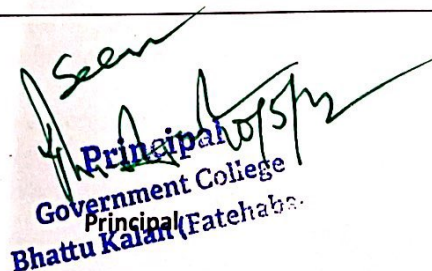 Seen
Principal
Government College
Principal
Bhattu Kalan (Fatehaba